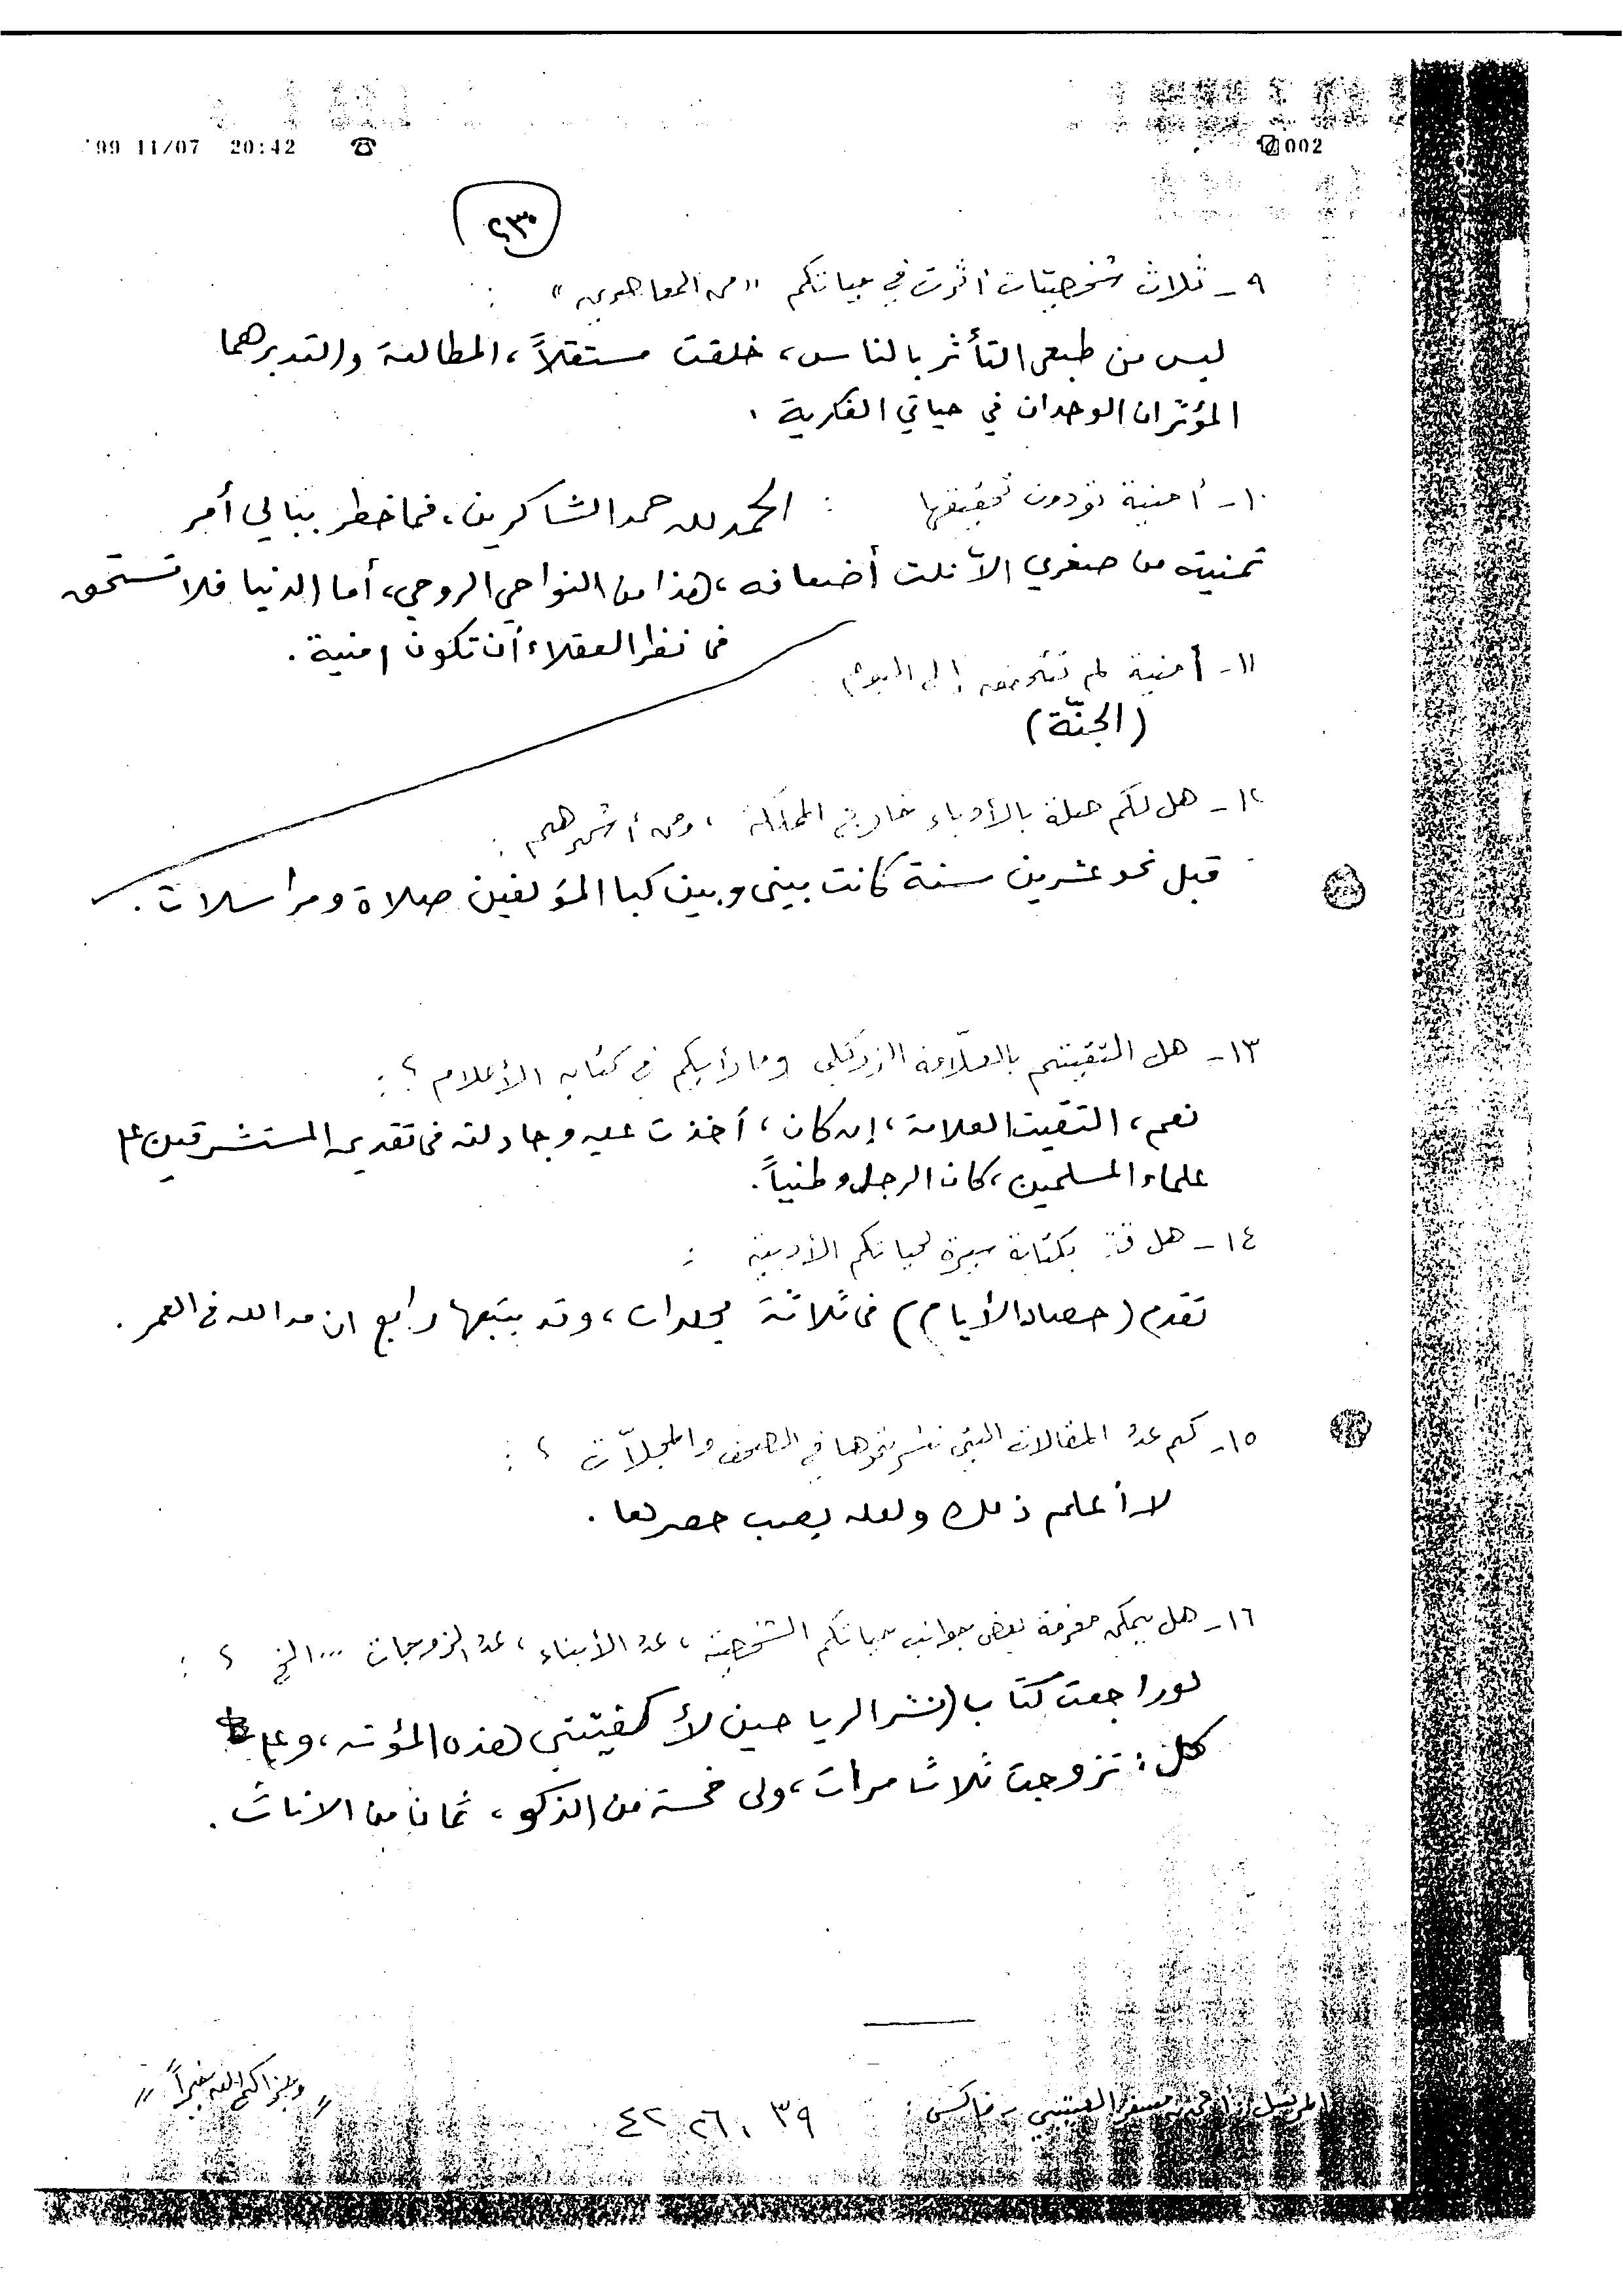 '99 11/07 20:42 ☎ 002
٢٣٠
٩ـ ثلاث شخصيات أثرت في حياتكم "من المعاصرين" :
ليس من طبعي التأثر بالناس، خلقت مستقلاً، المطالعة والتدبر هما
المؤثران الوحدان في حياتي الفكرية .
١٠ـ أمنية تودون تحقيقها : الحمد لله حمد الشاكرين، فما خطر ببالي أمر
تمنيته من صغري الا نلت أضعافه، هذا من النواحي الروحي، أما الدنيا فلا تستحق
في نظر العقلاء أن تكون امنية .
١١ـ أمنية لم تتحقق إلى اليوم :
(الجنّة)
١٢ـ هل لكم صلة بالأدباء خارج المملكة ، ومن أشهرهم :
قبل نحو عشرين سنة كانت بيني وبين كبا المؤلفين صلاة ومراسلات .
١٣ـ هل التقيتم بالعلّامة الزركلي وما رأيكم في كتابه الأعلام ؟ :
نعم، التقيت العلامة، إن كان، أخذت عليه وجادلته في تقديم المستشرقين على
علماء المسلمين، كان الرجل وطنياً .
١٤ـ هل بكتابة سيرة لحياتكم الأدبية :
تقدم (حصاد الأيام) في ثلاثة مجلدات، وقد يتبعها رابع ان مد الله في العمر .
١٥ـ كم عدد المقالات التي نشرتموها في الصحف والمجلاّت ؟ :
لا أعلم ذلك ولعله يصب حصرها .
١٦ـ هل يمكن معرفة بعض جوانب حياتكم الشخصية ، عدد الأبناء ، عدد الزوجات ... الخ ؟ :
لو راجعت كتاب (نشر الرياحين لأ كفيتني هذه المؤنه، وعلى
كل : تزوجت ثلاث مرات، ولي خمسة من الذكو ، ثمان من الاناث .
"وجزاكم الله خيراً"
المرسل العتيبي ـ فاكس : ٠٣٩ ٤٢٢٦